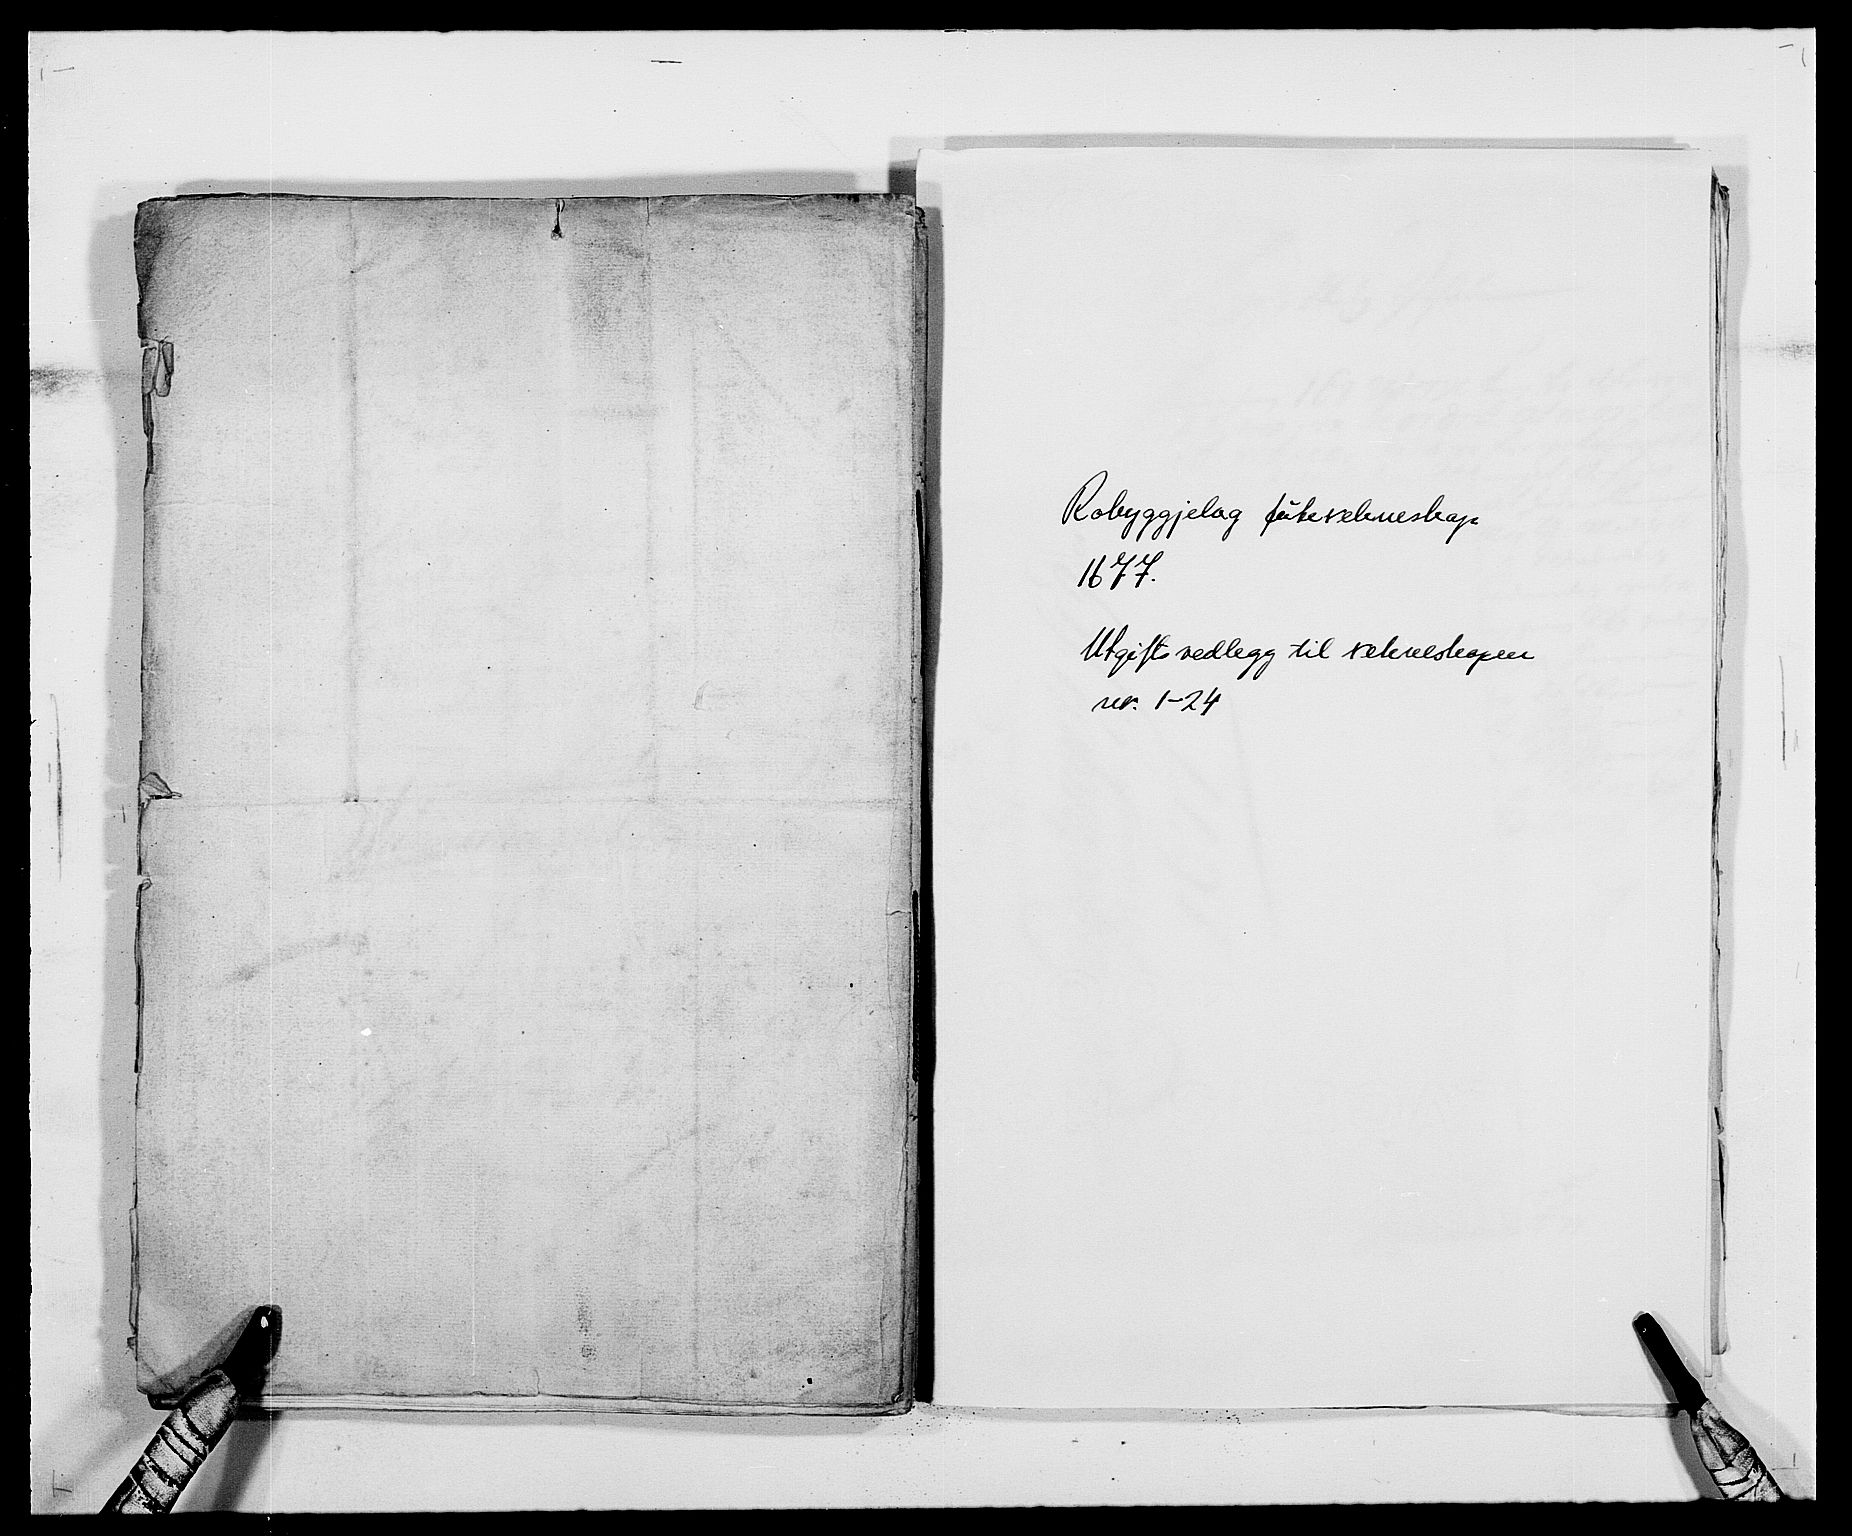 Robyggjelag futerekneskap
1677.
Utgiftsvedlegg til rekneskapen
nr. 1-24